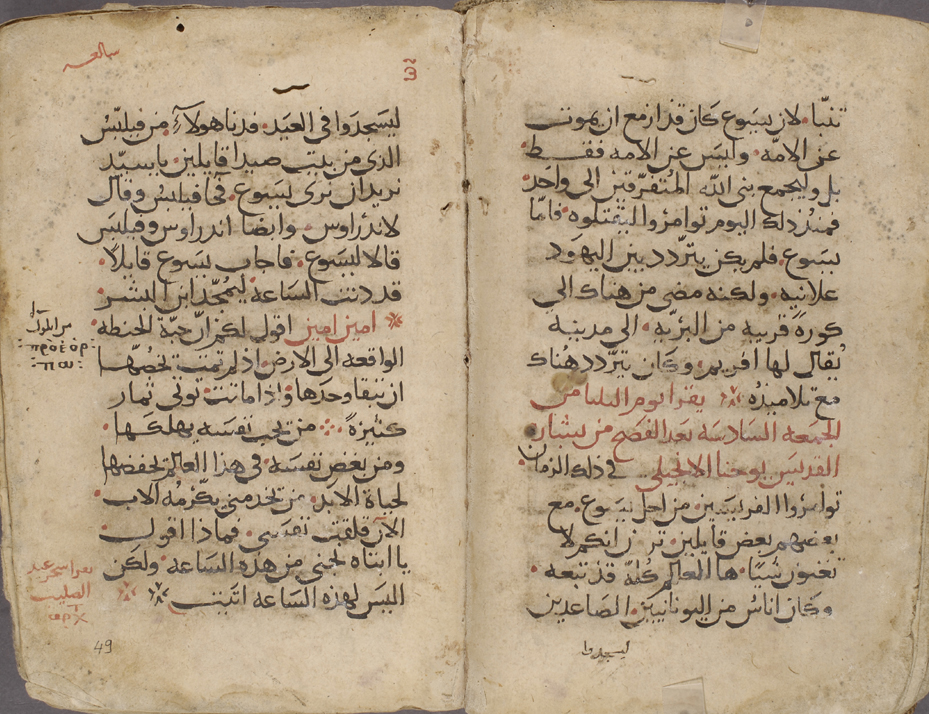 تنبّا. لان يسوع كان قد ازمع ان يموت
عن الامّه. وليس عن الامه فقط.
بل وليجمع بنى الله المتفرّقين الى واحد.
فمنذ ذلك اليوم توامروا ليقتلوه. فامّا
يسوع. فلم يكن يتردد بين اليهود
علانيه. ولكنه مضى من هناك الى
كورة قريبه من البرّيه. الى مدينه
يقال لها افريم. وكان يتردد هناك
مع تلاميذه يقرا يوم الثلثا من
الجمعه السادسه بعد الفصح من بشاره
القديس يوحنا الانجيلى فى ذلك الزمان
توامروا الفريسيين من اجل يسوع. مع
بعضهم بعض قايلين. انكم لا
تغنون شيئا. ها العالم كله قد تبعه.
وكان اناس من اليونانيين الصاعدين
ليسجدوا
ليسجدوا فى العيد. فدنا هولاء. من فيلبس
الذى من بيت صيدا قايلين. يا سيّد
نريد ان نرى يسوع. فجا فيلبس وقال
لاندراوس. وايضا اندراوس وفيلبس
قالا ليسوع. فاجاب يسوع قايلا.
قد دنت الساعه ليمجّد ابن البشر.
امين امين اقول لكم انّ حبّة الحنطه.
الواقعه الى الارض. اذ لم تمت تخصّها
ان تبقا وحدها. واذا ماتت. توتى ثمار
كثيرةً. من يحب نفسه يهلكها.
ومن بغض نفسه. فى هذا العالم يحفضها
لحياة الابد. من يخدمنى يكرّمه الاب.
الآن قلقت نفسى. فماذا اقول
يا ابتاه نجنى من هذه الساعه. ولكن
اليس لهذه الساعه اتيت
49